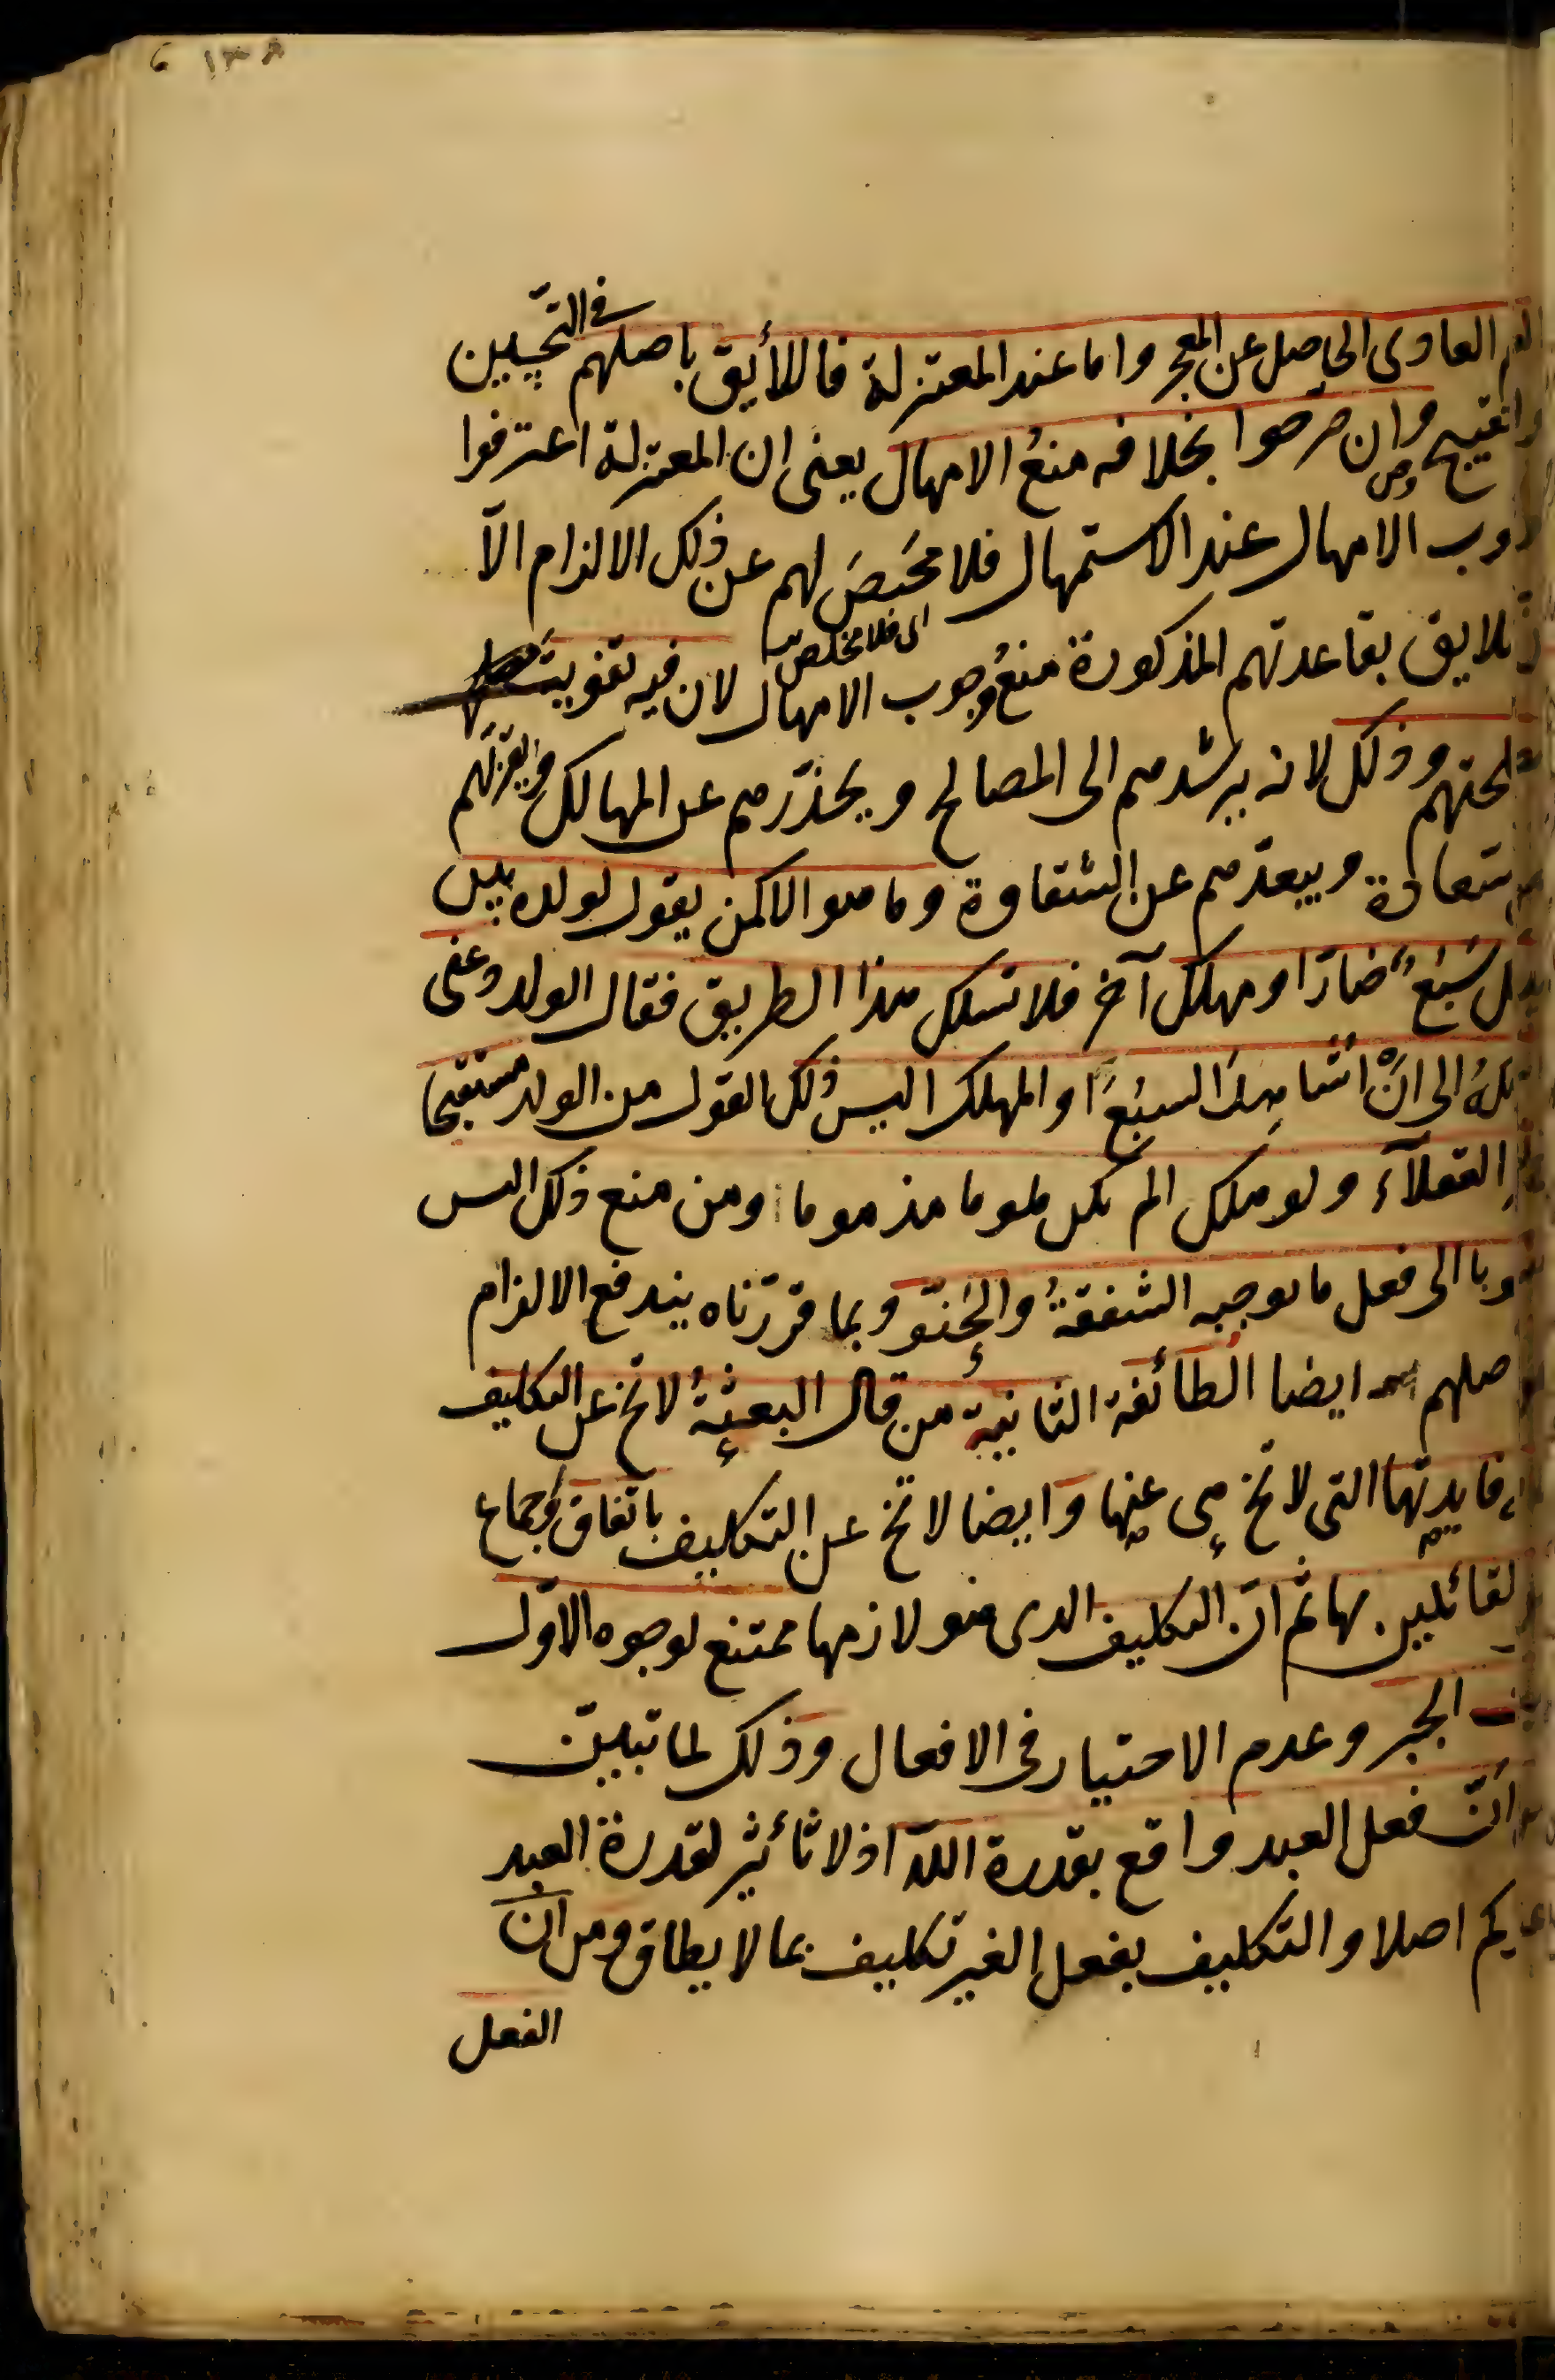 العلم العادى الحاصل عن المعجز واما عند المعتزلة فاللأيق باصلهم فى التحسين
والتقبيح وان صرحوا بخلافه منع الامهال يعنى ان المعتزلة اعترفوا
وجوب الامهال عند الاستمهال فلا محيص لهم عن ذلك الالزام الّا
اى فلا مخلص
لايق بقاعدتهم المذكورة منع وجوب الامهال لان فيه تفويت
مصلحتهم وذلك لانه يرشدهم الى المصالح ويحذّرهم عن المهالك ويقربهم
السعادة ويبعدهم عن الشقاوة وما هو الا كمن يقول لولده بين
يديك سبع ضار او مهلك آخر فلا تسلك هذا الطريق فقال الولد دعنى
اسلكه الى ان اشاهد السبع او المهلك اليس ذلك القول من الولد مستقبحا
العقلاء ولو هلك الم يكن ملوما مذموما ومن منع ذلك اليس
منسوبا الى فعل ما يوجبه الشفقة والحنو وبما قررناه يندفع الالزام
اصلهم ايضا الطائفة الثانية من قال البعثة لا تخ عن التكليف
فايدتها التى لا تخ هى عنها وايضا لا تخ عن التكليف باتفاق واجماع
القائلين بها ثم انّ التكليف الذى هو لازمها ممتنع لوجوه الاوّل
الجبر وعدم الاختيار فى الافعال وذلك لما تبيّن
انّ فعل العبد واقع بقدرة اللّه اذ لا تأثير لقدرة العبد
عندكم اصلا والتكليف بفعل الغير تكليف بما لا يطاق ومن ان
الفعل